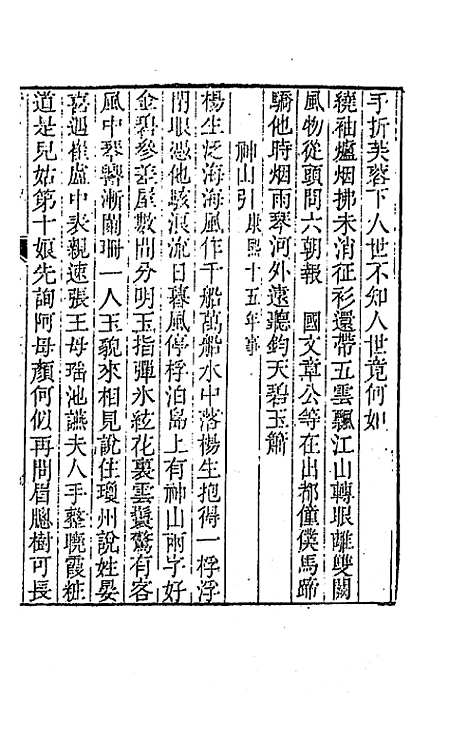 手折芙蓉下人世不知人世竟何如
繞袖爐烟拂未消征衫還帶五雲飄江山轉眼離雙闕
風物從頭問六朝報　國文章公等在出都僮僕馬蹄
驕他時烟雨琴河外遠聽鈞天碧玉簫
神山引康熙十五年事
楊生泛海海風作千船萬船水中落楊生抱得一桴浮
閉眼憑他駭浪流日暮風停桴泊島上有神山兩字好
金碧參差屋數間分明玉指彈氷絃花裏雲鬟驚有客
風中琴響漸闌珊一人玉貌來相見說住瓊州說姓晏
喜遇崔盧中表親速張王母瑤池讌夫人手整晩霞粧
道是兒姑第十娘先詢阿母顏何似再問眉騘樹可長